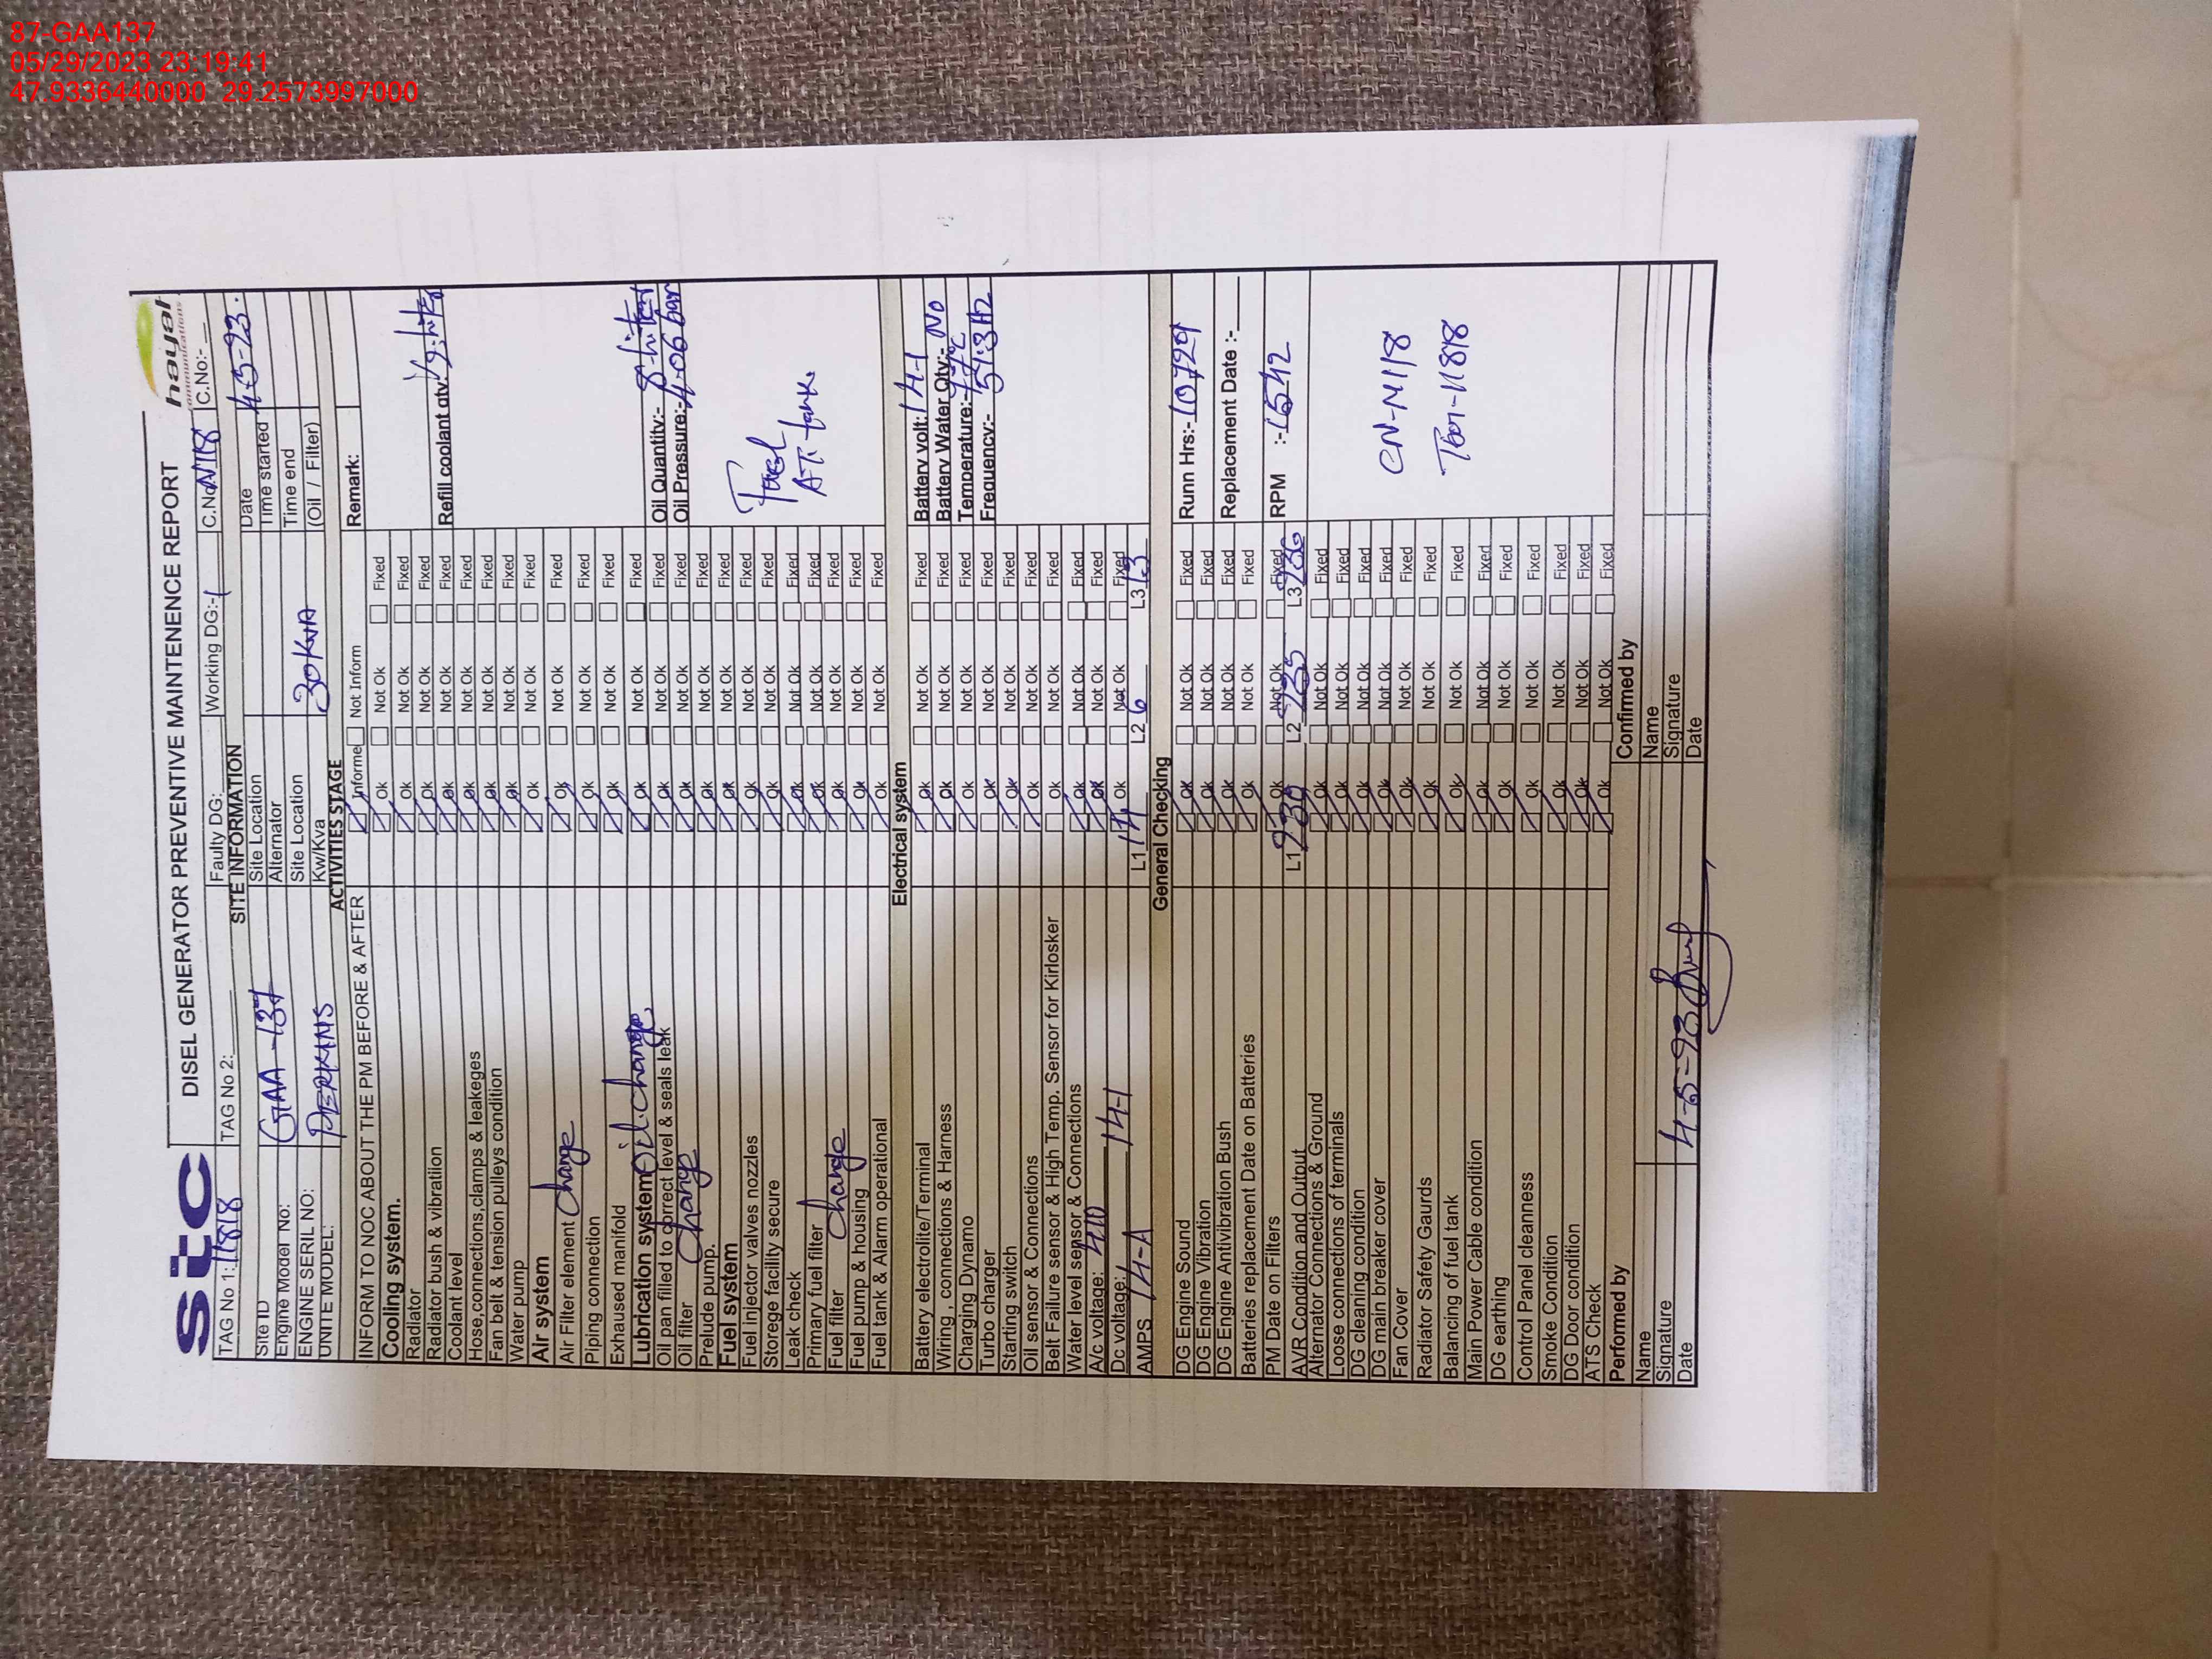 87-GAA137
05/29/2023 23:19:41
47.9336440000 29.2573997000
stc
DISEL GENERATOR PREVENTIVE MAINTENENCE REPORT
hayat
communications
TAG No 1: 11818 TAG No 2: Faulty DG: Working DG:-1 C.No N118 C.No:-
SITE INFORMATION
Site ID GAA-137 Site Location Date 4-5-23.
Engine Model No: Alternator Time started
ENGINE SERIL NO: PERKINS Site Location 30KVA Time end
UNITE MODEL: Kw/Kva (Oil / Filter)
ACTIVITIES STAGE
INFORM TO NOC ABOUT THE PM BEFORE & AFTER Informe Not Inform Remark:
Cooling system. Ok Not Ok Fixed
Radiator Ok Not Ok Fixed
Radiator bush & vibration Ok Not Ok Fixed
Coolant level Ok Not Ok Fixed Refill coolant qty:
Hose,connections,clamps & leakeges Ok Not Ok Fixed
Fan belt & tension pulleys condition Ok Not Ok Fixed
Water pump Ok Not Ok Fixed
Air system Ok Not Ok Fixed
Air Filter element change Ok Not Ok Fixed
Piping connection Ok Not Ok Fixed
Exhaused manifold Ok Not Ok Fixed
Lubrication system oil.change, Ok Not Ok Fixed
Oil pan filled to correct level & seals leak Ok Not Ok Fixed Oil Quantity:- 8-liter
Oil filter change Ok Not Ok Fixed Oil Pressure:- 4.06 bar
Prelude pump. Ok Not Ok Fixed
Fuel system Ok Not Ok Fixed
Fuel injector valves nozzles Ok Not Ok Fixed
Storege facility secure Ok Not Ok Fixed
Leak check Ok Not Ok Fixed
Primary fuel filter Ok Not Ok Fixed
Fuel filter change Ok Not Ok Fixed
Fuel pump & housing Ok Not Ok Fixed
Fuel tank & Alarm operational Ok Not Ok Fixed
Fuel
tank.
Electrical system
Battery electrolite/Terminal Ok Not Ok Fixed Battery volt: 14-1
Wiring , connections & Harness Ok Not Ok Fixed Battery Water Qty:- No
Charging Dynamo Ok Not Ok Fixed Temperature:- 77°C
Turbo charger Ok Not Ok Fixed Frequency:- 51.3 Hz
Starting switch Ok Not Ok Fixed
Oil sensor & Connections Ok Not Ok Fixed
Belt Failure sensor & High Temp. Sensor for Kirlosker Ok Not Ok Fixed
Water level sensor & Connections Ok Not Ok Fixed
A/c voltage: 410 Ok Not Ok Fixed
Dc voltage: 14-1 Ok Not Ok Fixed
AMPS 14-A L1 14 L2 6 L3 13
General Checking
DG Engine Sound Ok Not Ok Fixed Runn Hrs:- 10729
DG Engine Vibration Ok Not Ok Fixed
DG Engine Antivibration Bush Ok Not Ok Fixed Replacement Date :-
Batteries replacement Date on Batteries Ok Not Ok Fixed
PM Date on Filters Ok Not Ok Fixed RPM :- 1542
AVR Condition and Output L1 230 L2 235 L3 236
Alternator Connections & Ground Ok Not Ok Fixed
Loose connections of terminals Ok Not Ok Fixed
DG cleaning condition Ok Not Ok Fixed
DG main breaker cover Ok Not Ok Fixed
Fan Cover Ok Not Ok Fixed
Radiator Safety Gaurds Ok Not Ok Fixed
Balancing of fuel tank Ok Not Ok Fixed
Main Power Cable condition Ok Not Ok Fixed
DG earthing Ok Not Ok Fixed
Control Panel cleanness Ok Not Ok Fixed
Smoke Condition Ok Not Ok Fixed
DG Door condition Ok Not Ok Fixed
ATS Check Ok Not Ok Fixed
CN-N118
11818
Performed by Confirmed by
Name Name
Signature Signature
Date 4-5-23 Date